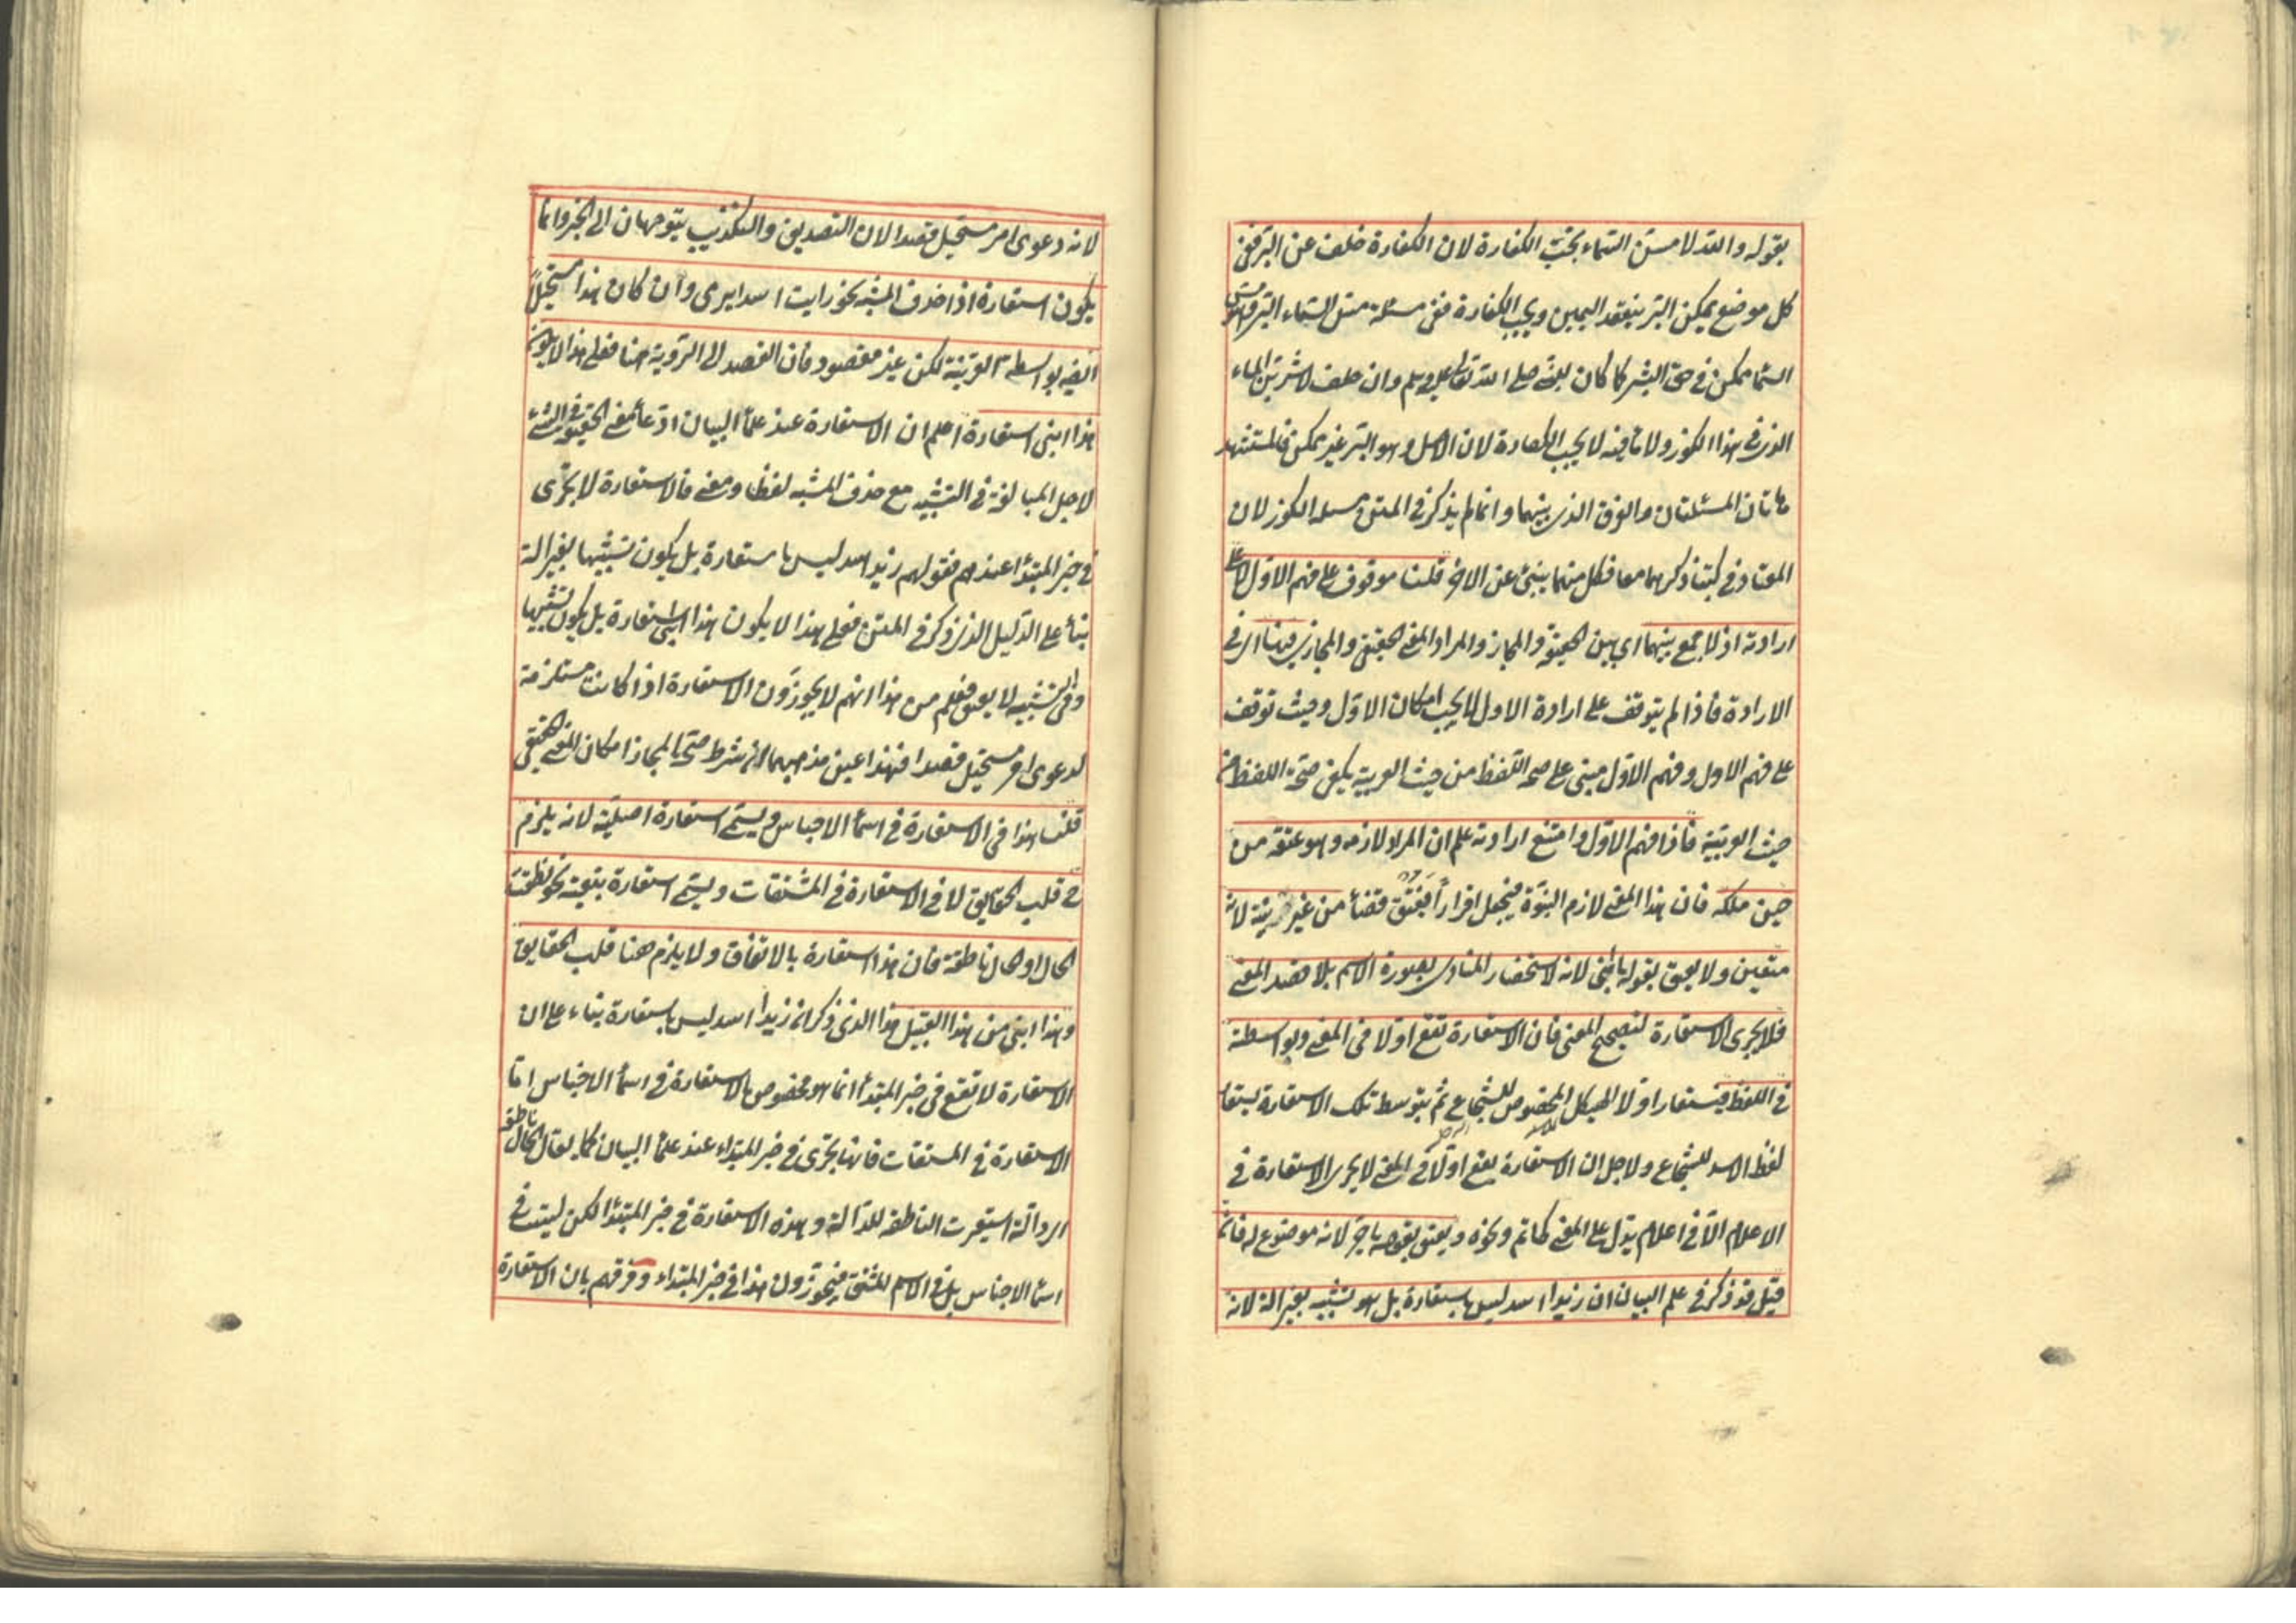 بقوله والله لامسن السماء يجب الكفارة لان الكفارة خلف عن البر ففى
كل موضع يمكن البر ينعقد اليمين ويجب الكفارة ففى مسئلة مس السماء البر وهو مس
السما ممكن فى حق البشر كما كان للنبى صلى الله تعالى عليه وسلم وان حلف لاشربن الماء
الذى فى هذا الكوز ولا ماء فيه لا يجب الكفارة لان الاصل وهو البر غير ممكن فالمستشهد
هاتان المسئلتان والفرق الذى بينهما وانما لم يذكر فى المتن مسئلة الكوز لان
المعتاد فى كتبنا ذكرهما معا فكل منهما ينبئ عن الاخر قلنا موقوف على فهم الاول لا على
ارادته اذ لا جمع بينهما اى بين الحقيقة والمجاز والمراد المعنى الحقيقى والمجازى فيهنا اى فى
الارادة فاذا لم يتوقف على ارادة الاول لا يجب امكان الاول وحيث توقف
على فهم الاول وفهم الاول مبنى على صحة اللفظ من حيث العربية يكفى صحة اللفظ من
حيث العربية فاذا فهم الاول وامتنع ارادته علم ان المراد لازمه وهو عتقه من
حين ملكه فان هذا المعنى لازم البنوة فيجعل اقرارا فيعتق قضأ من غير نية لانه
متعين ولا يعتق بقوله يا ابنى لانه لاستحضار المنادى بصورة الاسم بلا قصد المعنى
فلا يجرى الاستعارة لتصحيح المعنى فان الاستعارة تقع اولا فى المعنى وبواسطته
فى اللفظ فيستعار اولا الهيكل المخصوص للشجاع ثم بتوسط تلك الاستعارة يستعار
لفظ الاسد للشجاع ولاجل ان الاستعارة يقع اولا فى المعنى لا يجرى الاستعارة فى
الاعلام الا فى اعلام يدل على المعنى كحاتم ونحوه ويعتق بقوله يا حر لانه موضوع له فائدة
قيل قد ذكر فى علم البيان ان زيدا اسد ليس باستعارة بل هو تشبيه بغير الة لانه
لانه دعوى امر مستحيل قصدا لان التصديق والتكذيب يتوجهان الى الخبر وانما
يكون استعارة اذا حذف المشبه نحو رايت اسدا يرمى وان كان هذا مستحيلا
ايضا بواسطة القرينة لكن غير مقصود فان القصد الى الروية هنا فعلى هذا لا يكون
هذا ابنى استعارة اعلم ان الاستعارة عند علمأ البيان ادعأ معنى الحقيقة فى الشئ
لاجل المبالغة فى التشبيه مع حذف المشبه لفظا ومعنى فالاستعارة لا يجرى
فى خبر المبتدأ عندهم فقولهم زيد اسد ليس باستعارة بل يكون تشبيها بغير الة
بنأ على الدليل الذى ذكر فى المتن فعلى هذا لا يكون هذا ابنى استعارة بل يكون تشبيها
وفى التشبيه لا يعتق فعلم من هذا انهم لا يجوزون الاستعارة اذا كانت مستلزمة
لدعوى امر مستحيل قصدا فهذا عين مذهبهما لان شرط صحة المجاز امكان المعنى الحقيقى
قلنا هذا فى الاستعارة فى اسمأ الاجناس ويسمى استعارة اصلية لانه يلزم
ح قلب الحقايق لا فى الاستعارة فى المشتقات ويسمى استعارة تبعية نحو نطقت
الحال او الحال ناطقة فان هذا استعارة بالاتفاق ولا يلزم هنا قلب الحقايق
وهذا ابنى من هذا القبيل هذا الذى ذكر ان زيدا اسد ليس باستعارة بناء على ان
الاستعارة لا تقع فى خبر المبتدأ انما هو مخصوص بالاستعارة فى اسمأ الاجناس اما
الاستعارة فى المشتقات فانها يجرى فى خبر المبتداء عند علمأ البيان كما يقال الحال ناطقة
اى دالة استعيرت الناطقة للدالة وهذه الاستعارة فى خبر المبتدأ لكن ليست فى
اسمأ الاجناس بل فى الاسم المشتق فيجوزون هذا فى خبر المبتداء وفرقهم بان الاستعارة